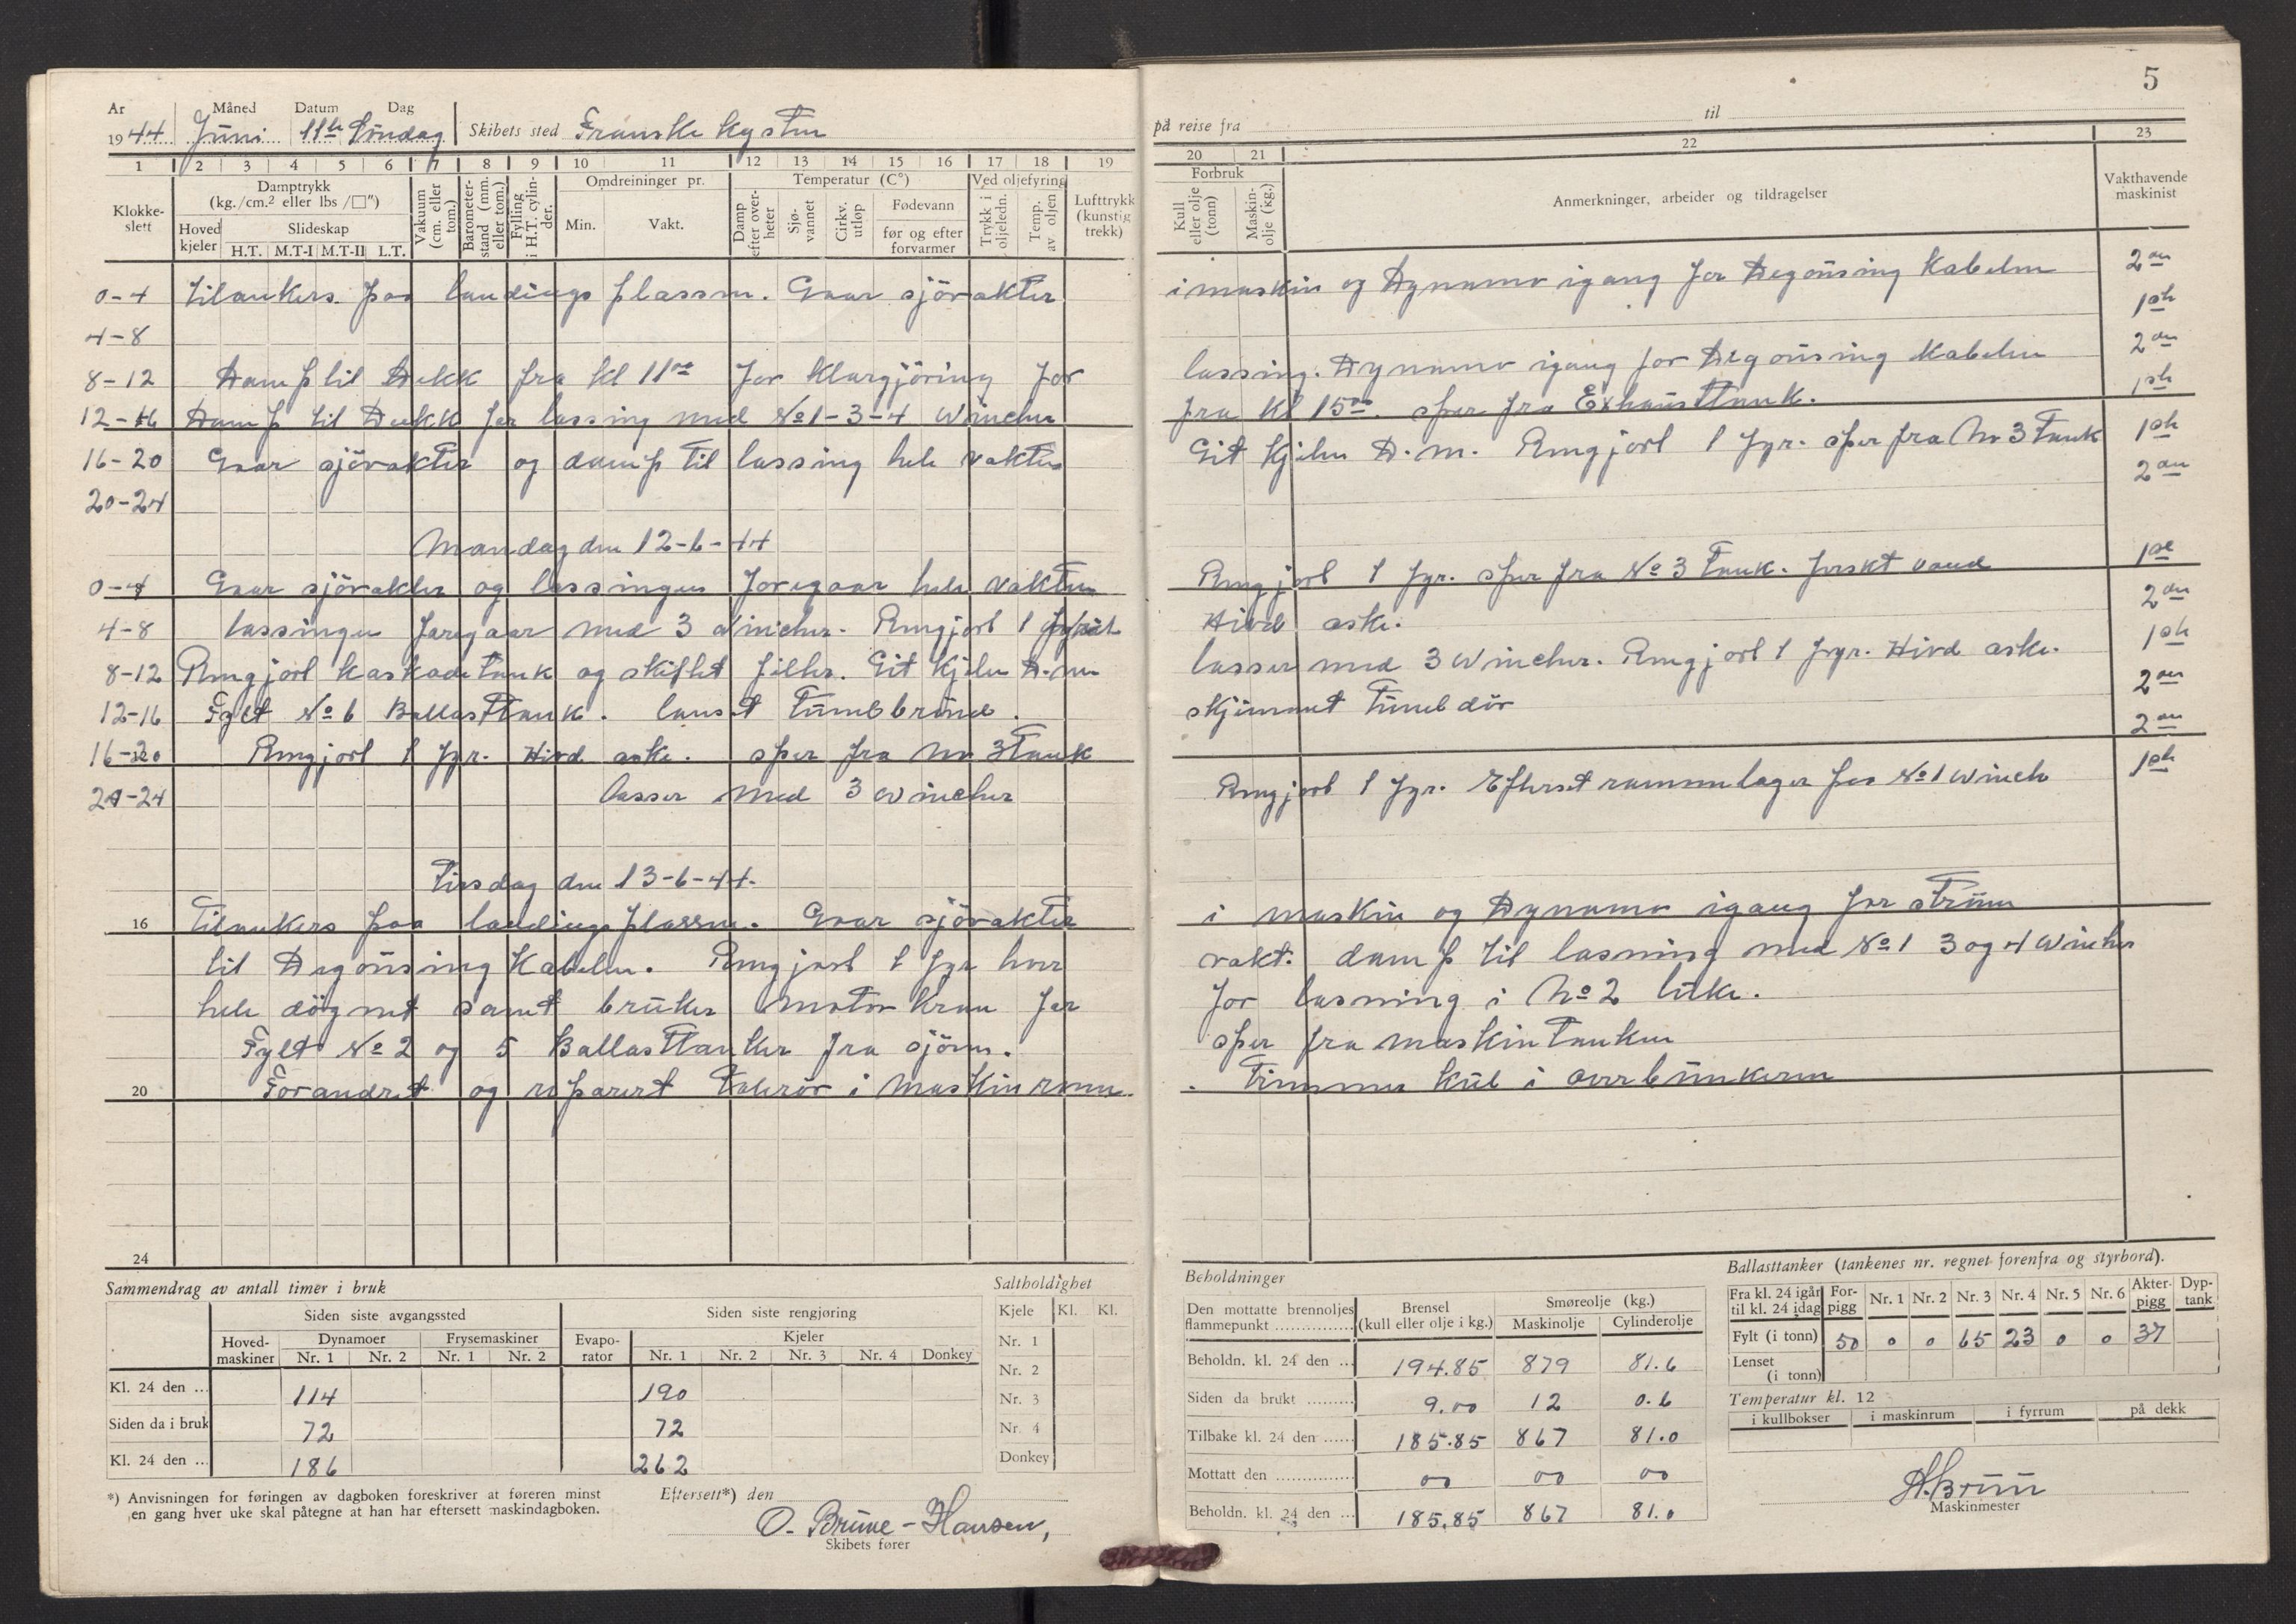 År Måned Datum Dag
1944 Juni 11te Söndag Skibets sted Franske kysten
1 2 3 4 5 6 7 8 9 10 11 12 13 14 15 16 17 18 19
Klokkeslett
Damptrykk (kg./cm.² eller lbs /□")
Hoved kjeler
Slideskap
H.T. M.T-I M.T-II L.T.
Vakuum (cm. eller tom.)
Barometerstand (mm. eller tom.)
Fylling i H.T. cylinder.
Omdreininger pr.
Min. Vakt.
Temperatur (C°)
Damp efter overheter
Sjøvannet
Cirkv. utløp
Fødevann
før og efter forvarmer
Ved oljefyring
Trykk i oljeledn.
Temp. av oljen
Lufttrykk (kunstig trekk)
0-4 Tilankers paa landings plassen. Gaar sjövakter
4-8
8-12 Damp til Dekk fra kl 11⁰⁰ for klargjöring for
12-16 Damp til Dekk for lossing med No 1-3-4 Wincher
16-20 Gaar sjövakter og damp til lossing hele vakten
20-24
Mandag den 12-6-44
0-4 Gaar sjövakter og lossingen foregaar hele vakten
4-8 lossingen foregaar med 3 Wincher. Rengjort 1
8-12 Rengjort kaskadetank og skiftet filter. Git kjelen D.m
12-16 Fylt No 6 Ballasttank. lenset tunelbrönd.
16-20 Rengjort 1 fyr. Hivd aske. sper fra No 3 Tank
20-24 losser med 3 wincher
Tirsdag den 13-6-44.
16 Tilankers paa landings plassen. Gaar sjövakter
til Degousing Kabelen. Rengjort 1 fyr hver
hele dögnet samt bruker motor kran for
Fylt No 2 og 5 Ballasttanker fra sjöen.
20 Forandret og reparert i maskinrom.
24
Sammendrag av antall timer i bruk
Siden siste avgangssted Siden siste rengjøring
Hovedmaskiner Dynamoer Frysemaskiner Evaporator Kjeler
Nr. 1 Nr. 2 Nr. 1 Nr. 2 Nr. 1 Nr. 2 Nr. 3 Nr. 4 Donkey
Kl. 24 den ... 114 190
Siden da i bruk 72 72
Kl. 24 den ... 186 262
Saltholdighet
Kjele Kl. Kl.
Nr. 1
Nr. 2
Nr. 3
Nr. 4
Donkey
*) Anvisningen for føringen av dagboken foreskriver at føreren minst
en gang hver uke skal påtegne at han har eftersett maskindagboken.
Eftersett*) den
O. Brune-Hansen,
Skibets fører
5
på reise fra til
20 21 22 23
Forbruk
Kull eller olje (tonn)
Maskinolje (kg.)
Anmerkninger, arbeider og tildragelser
Vakthavende maskinist
i maskin og Dynamo igang for Degousing Kabelen 2en
1ste
lossing. Dynamo igang for Degousing Kabelen 2en
fra kl 15⁰⁰. sper fra Exhausttank. 1ste
Git kjelen D.m. Rengjort 1 fyr. sper fra No 3 Tank 1ste
2en
Rengjort 1 fyr. sper fra No 3 Tank. ferskt vand 1ste
Hivd aske. 2en
losser med 3 Wincher. Rengjort 1 fyr. Hivd aske. 1ste
tuneldör 2en
2en
Rengjort 1 fyr. Efterset rammelager paa No 1 winch 1ste
i maskin og Dynamo igang for ström
vakt. damp til lossning med No 1 3 og 4 Wincher
for lossning i No 2 luke.
sper fra maskintanken
Trimmer kul i overbunkeren
Beholdninger
Den mottatte brennoljes flammepunkt ............... Brensel (kull eller olje i kg.) Smøreolje (kg.)
Maskinolje Cylinderolje
Beholdn. kl. 24 den ... 194.85 879 81.6
Siden da brukt ......... 9.00 12 0.6
Tilbake kl. 24 den ...... 185.85 867 81.0
Mottatt den ................ 00 00 00
Beholdn. kl. 24 den ... 185.85 867 81.0
Ballasttanker (tankenes nr. regnet forenfra og styrbord).
Fra kl. 24 igår til kl. 24 idag Forpigg Nr. 1 Nr. 2 Nr. 3 Nr. 4 Nr. 5 Nr. 6 Akterpigg Dyptank
Fylt (i tonn) 50 0 0 65 23 0 0 37
Lenset (i tonn)
Temperatur kl. 12
i kullbokser i maskinrum i fyrrum på dekk
A. Bruun
Maskinmester